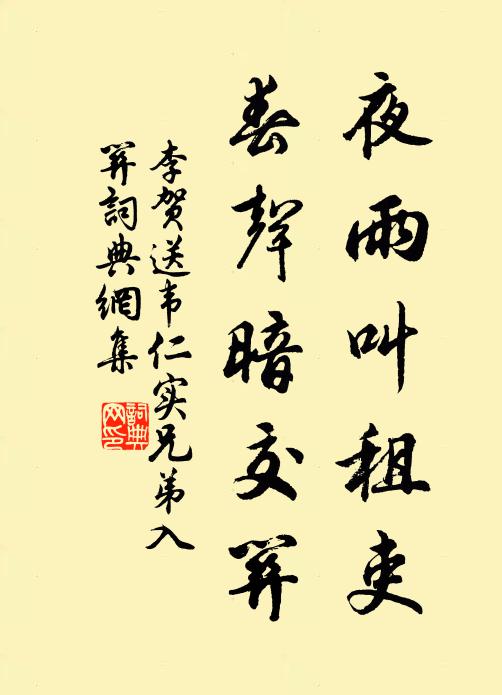 夜雨叫租吏
舂聲暗交关
李贺送韦仁实兄弟入
关詞典網集
詞典
网印